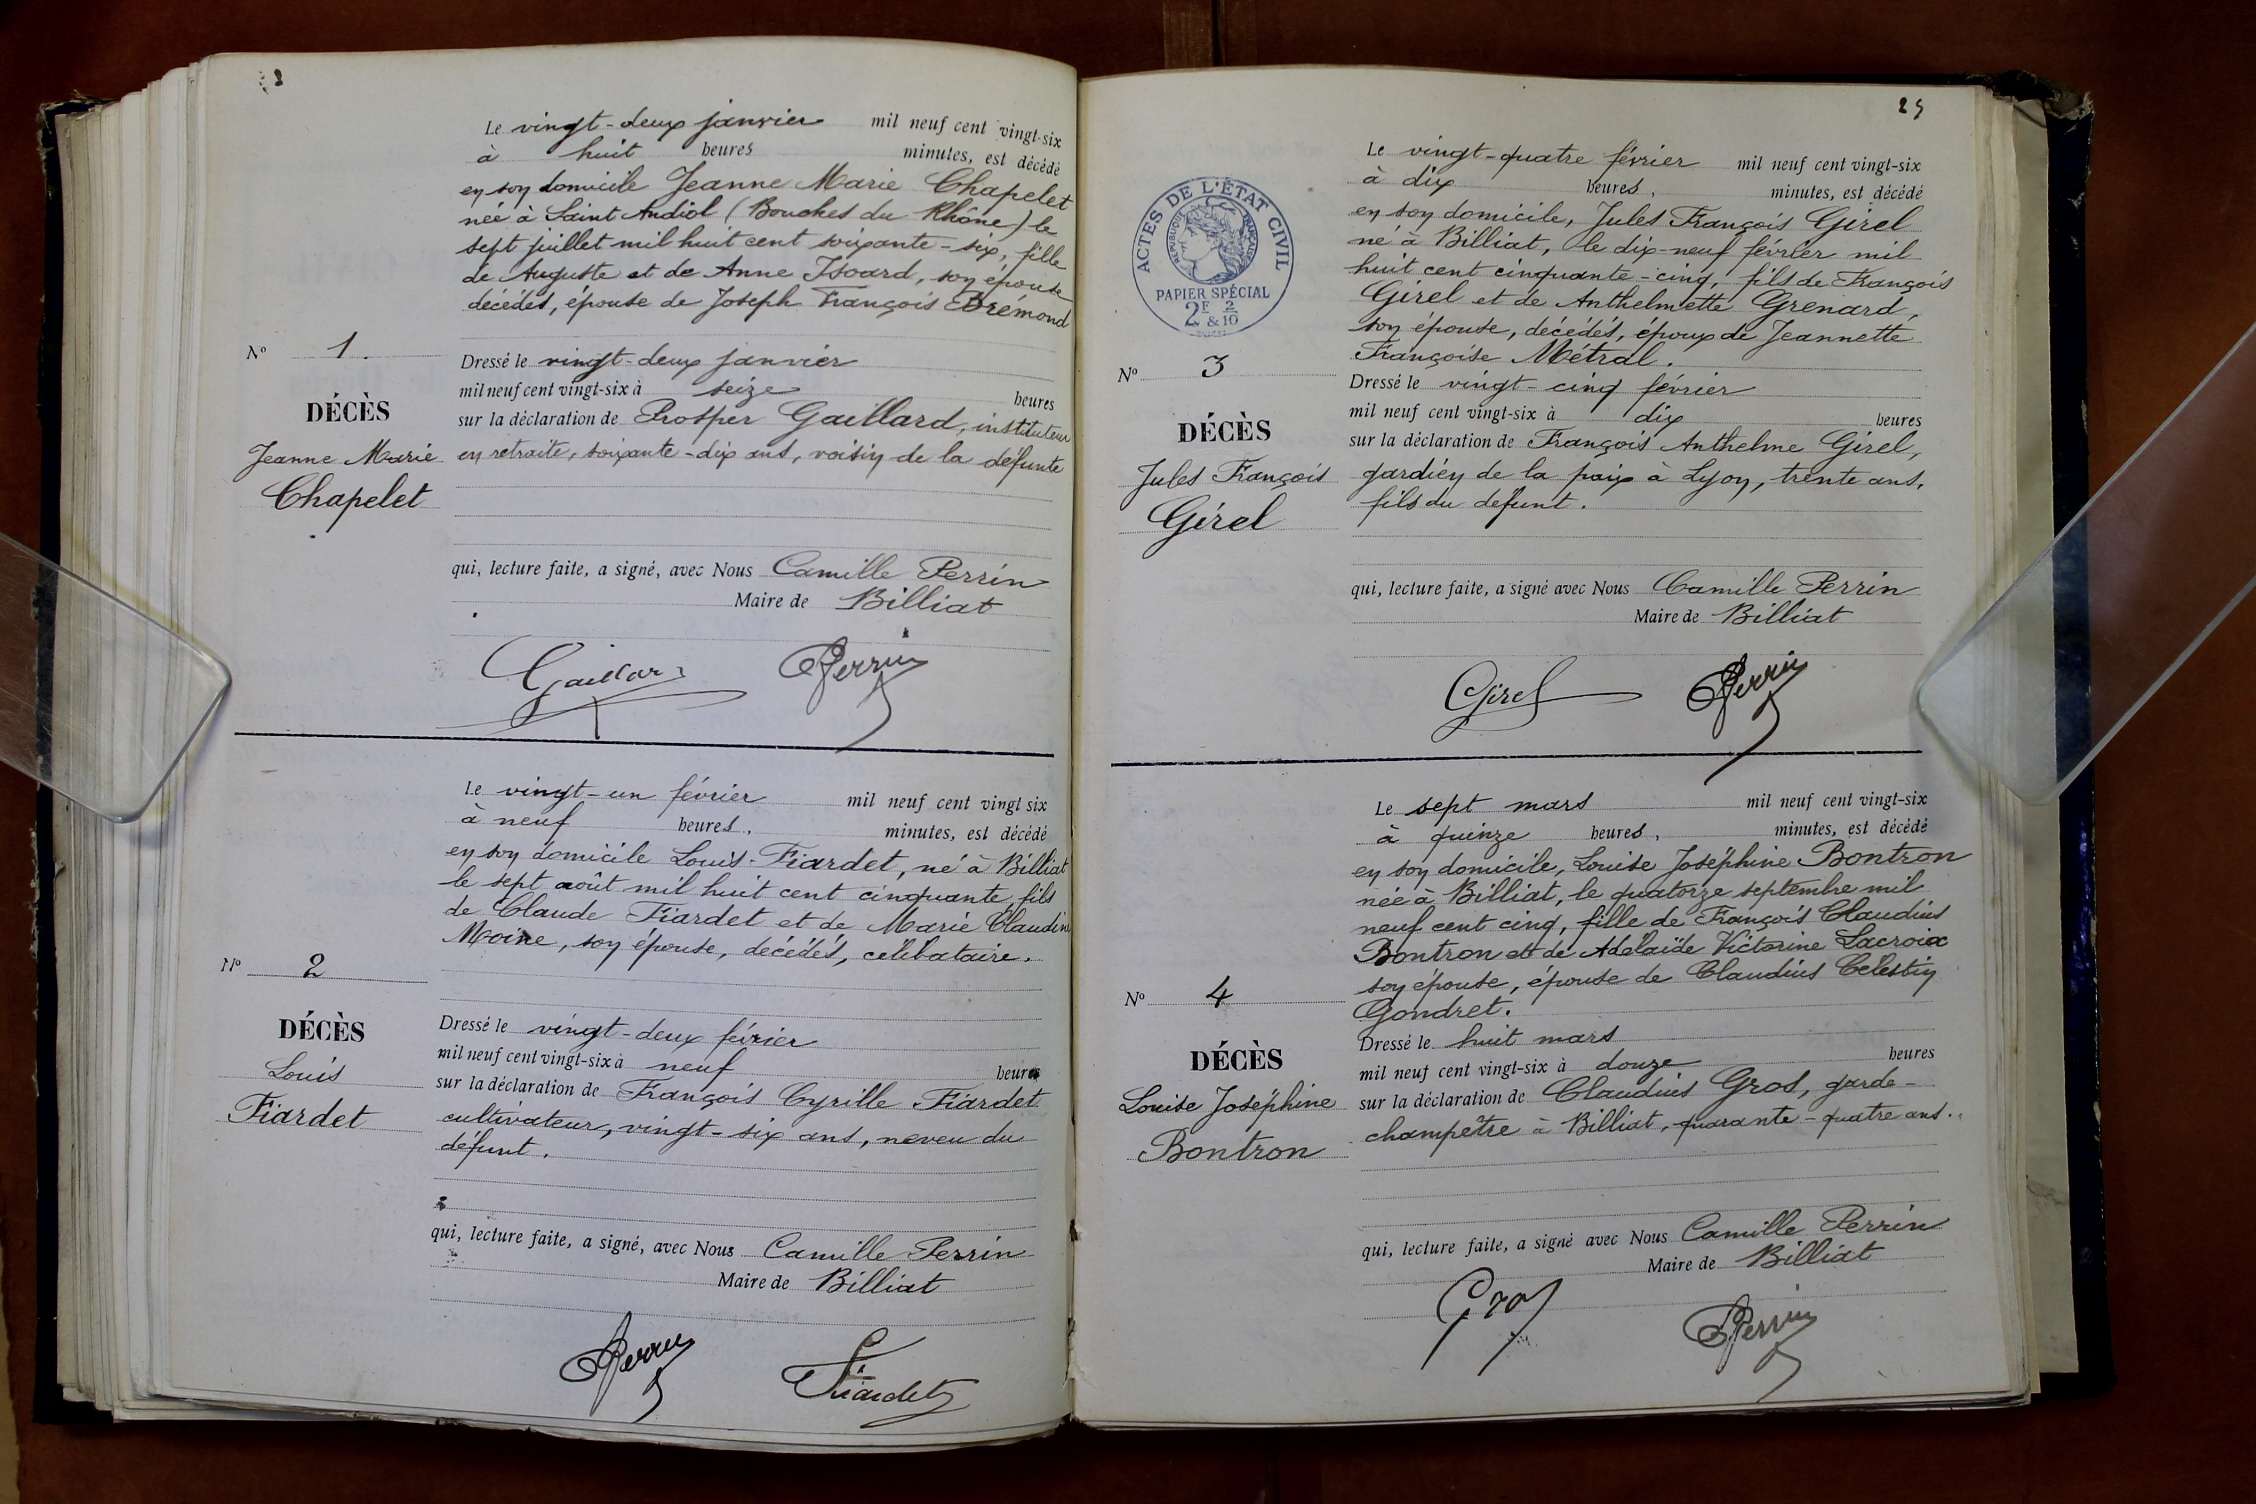 Le vingt-deux janvier mil neuf cent vingt-six
à huit heures minutes, est décédé
en son domicile Jeanne Marie Chapelet
née à Saint Andiol (Bouches du Rhône) le
sept juillet mil huit cent soixante-six, fille
de Auguste et de Anne Isoard, son épouse
décédés, épouse de Joseph François Brémond
No 1.
DÉCÈS
Jeanne Marie
Chapelet
Dressé le vingt-deux janvier
mil neuf cent vingt-six à seize heures
sur la déclaration de Prosper Gaillard, instituteur
en retraite, soixante-dix ans, voisin de la défunte
qui, lecture faite, a signé, avec Nous Camille Perrin
Maire de Billiat
Gaillard Perrin
Le vingt-un février mil neuf cent vingt six
à neuf heures, minutes, est décédé
en son domicile Louis Fiardet, né à Billiat
le sept août mil huit cent cinquante, fils
de Claude Fiardet et de Marie Claudine
Moine, son épouse, décédés, célibataire.
No 2
DÉCÈS
Louis
Fiardet
Dressé le vingt-deux février
mil neuf cent vingt-six à neuf heures
sur la déclaration de François Cyrille Fiardet
cultivateur, vingt-six ans, neveu du
défunt.
qui, lecture faite, a signé, avec Nous Camille Perrin
Maire de Billiat
Perrin Fiardet
25
ACTES DE L'ÉTAT CIVIL
RÉPUBLIQUE FRANÇAISE
PAPIER SPÉCIAL
2F & 2/10
Le vingt-quatre février mil neuf cent vingt-six
à dix heures, minutes, est décédé
en son domicile, Jules François Girel
né à Billiat, le dix-neuf février mil
huit cent cinquante-cinq, fils de François
Girel et de Anthelmette Grenard,
son épouse, décédés, époux de Jeannette
Françoise Métral.
No 3
DÉCÈS
Jules François
Girel
Dressé le vingt-cinq février
mil neuf cent vingt-six à dix heures
sur la déclaration de François Anthelme Girel,
gardien de la paix à Lyon, trente ans,
fils du défunt.
qui, lecture faite, a signé avec Nous Camille Perrin
Maire de Billiat
Girel Perrin
Le sept mars mil neuf cent vingt-six
à quinze heures, minutes, est décédé
en son domicile, Louise Joséphine Bontron
née à Billiat, le quatorze septembre mil
neuf cent cinq, fille de François Claudius
Bontron et de Adélaïde Victorine Lacroix
son épouse, épouse de Claudius Célestin
Gondret.
No 4
DÉCÈS
Louise Joséphine
Bontron
Dressé le huit mars
mil neuf cent vingt-six à douze heures
sur la déclaration de Claudius Gros, garde-
champêtre à Billiat, quarante-quatre ans.
qui, lecture faite, a signé avec Nous Camille Perrin
Maire de Billiat
Gros Perrin